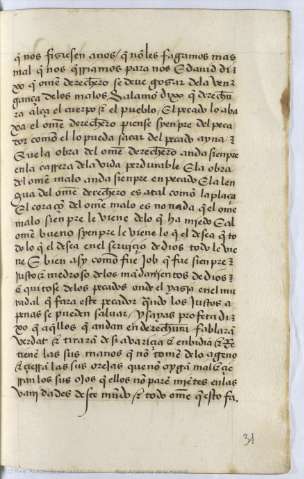 q̃ nos fisiesen a nos / q̃ nõ les fagamos mas
mal q̃ nos q̃rriamos para nos E dauid di
xo q̃ om̃e derechero se deue gozar dela ven
gança delos malos Salamõ dixo q̃ derechu
ra alça el cuerpo & el pueblo / El pecado lo aba
xa / el om̃e derechero piense syenpre del peca
dor como el lo pueda sacar del pecado ayna &
Quela obra del om̃e derechero anda sienpre
en la carrera dela vida perdurable E la obra
del om̃e malo anda sienpre en pecado E la len
gua del om̃e derechero es atal como la plata
El coraçõ del om̃e malo es no nada q̃ el om̃e
malo sienpre le viene delo q̃ ha miedo E al
om̃e bueno syenpre le viene lo q̃ el desea q̃ to
do lo q̃ el desea en el seruiçio de dios todo le vie
ne E bien asy como fue Job q̃ fue sienpre &
justo & medroso delos mãdamientos de dios &
& quitose delos pecados onde el yasya en el mu
radal q̃ fara este pecador qũdo los Justos a
penas se pueden saluar / ysayas profeta di
xo q̃ aq̃llos q̃ andan en derechura fablarã
verdat & tirarã de sy avariçia & enbidia &
tienẽ las sus manos q̃ nõ tomẽ delo ageno
& çierrã las sus orejas que nõ oygã mal &
çierrã los sus ojos q̃ ellos nõ parẽ miẽtes en las
vanidades deste mũdo & todo om̃e q̃ esto fa
31